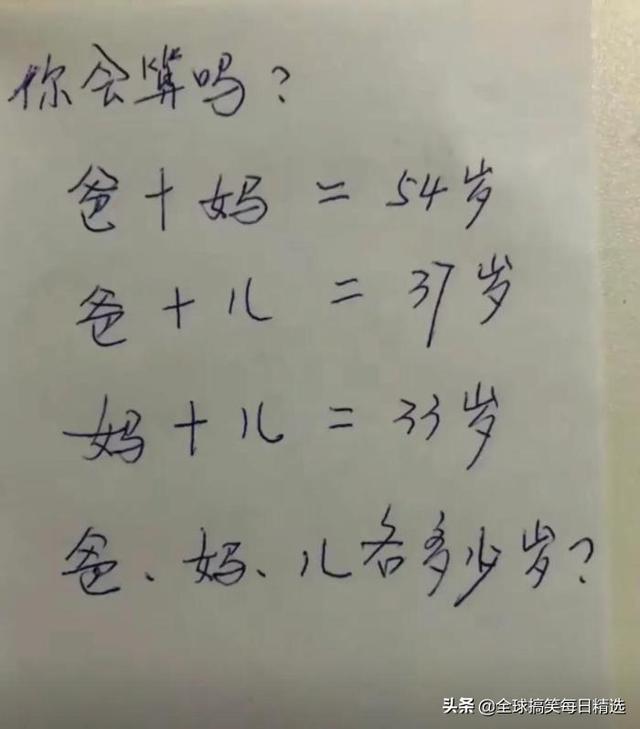 你会算吗?
爸+妈=54岁
爸+儿=37岁
妈+儿=33岁
爸、妈、儿各多少岁?
头条 @全球搞笑每日精选